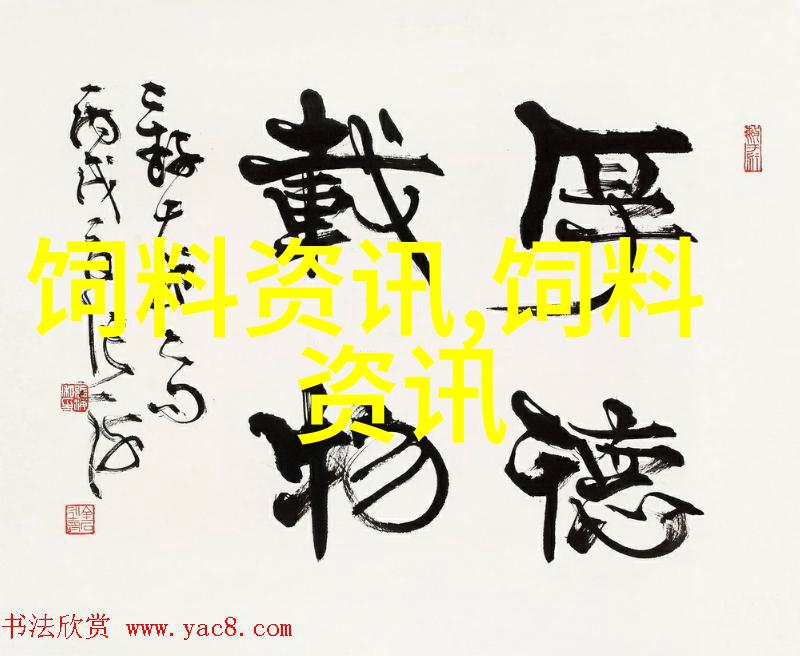 厚德
載物
丙戌
饲料资讯,饲料
资讯
书法欣赏 www.yac8.com